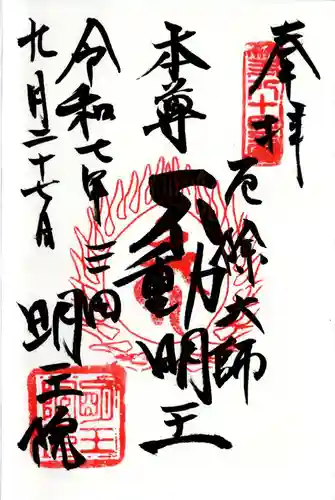 奉拝
厄除大師
本尊
不動明王
令和七年
三田
明王院
九月二十七日